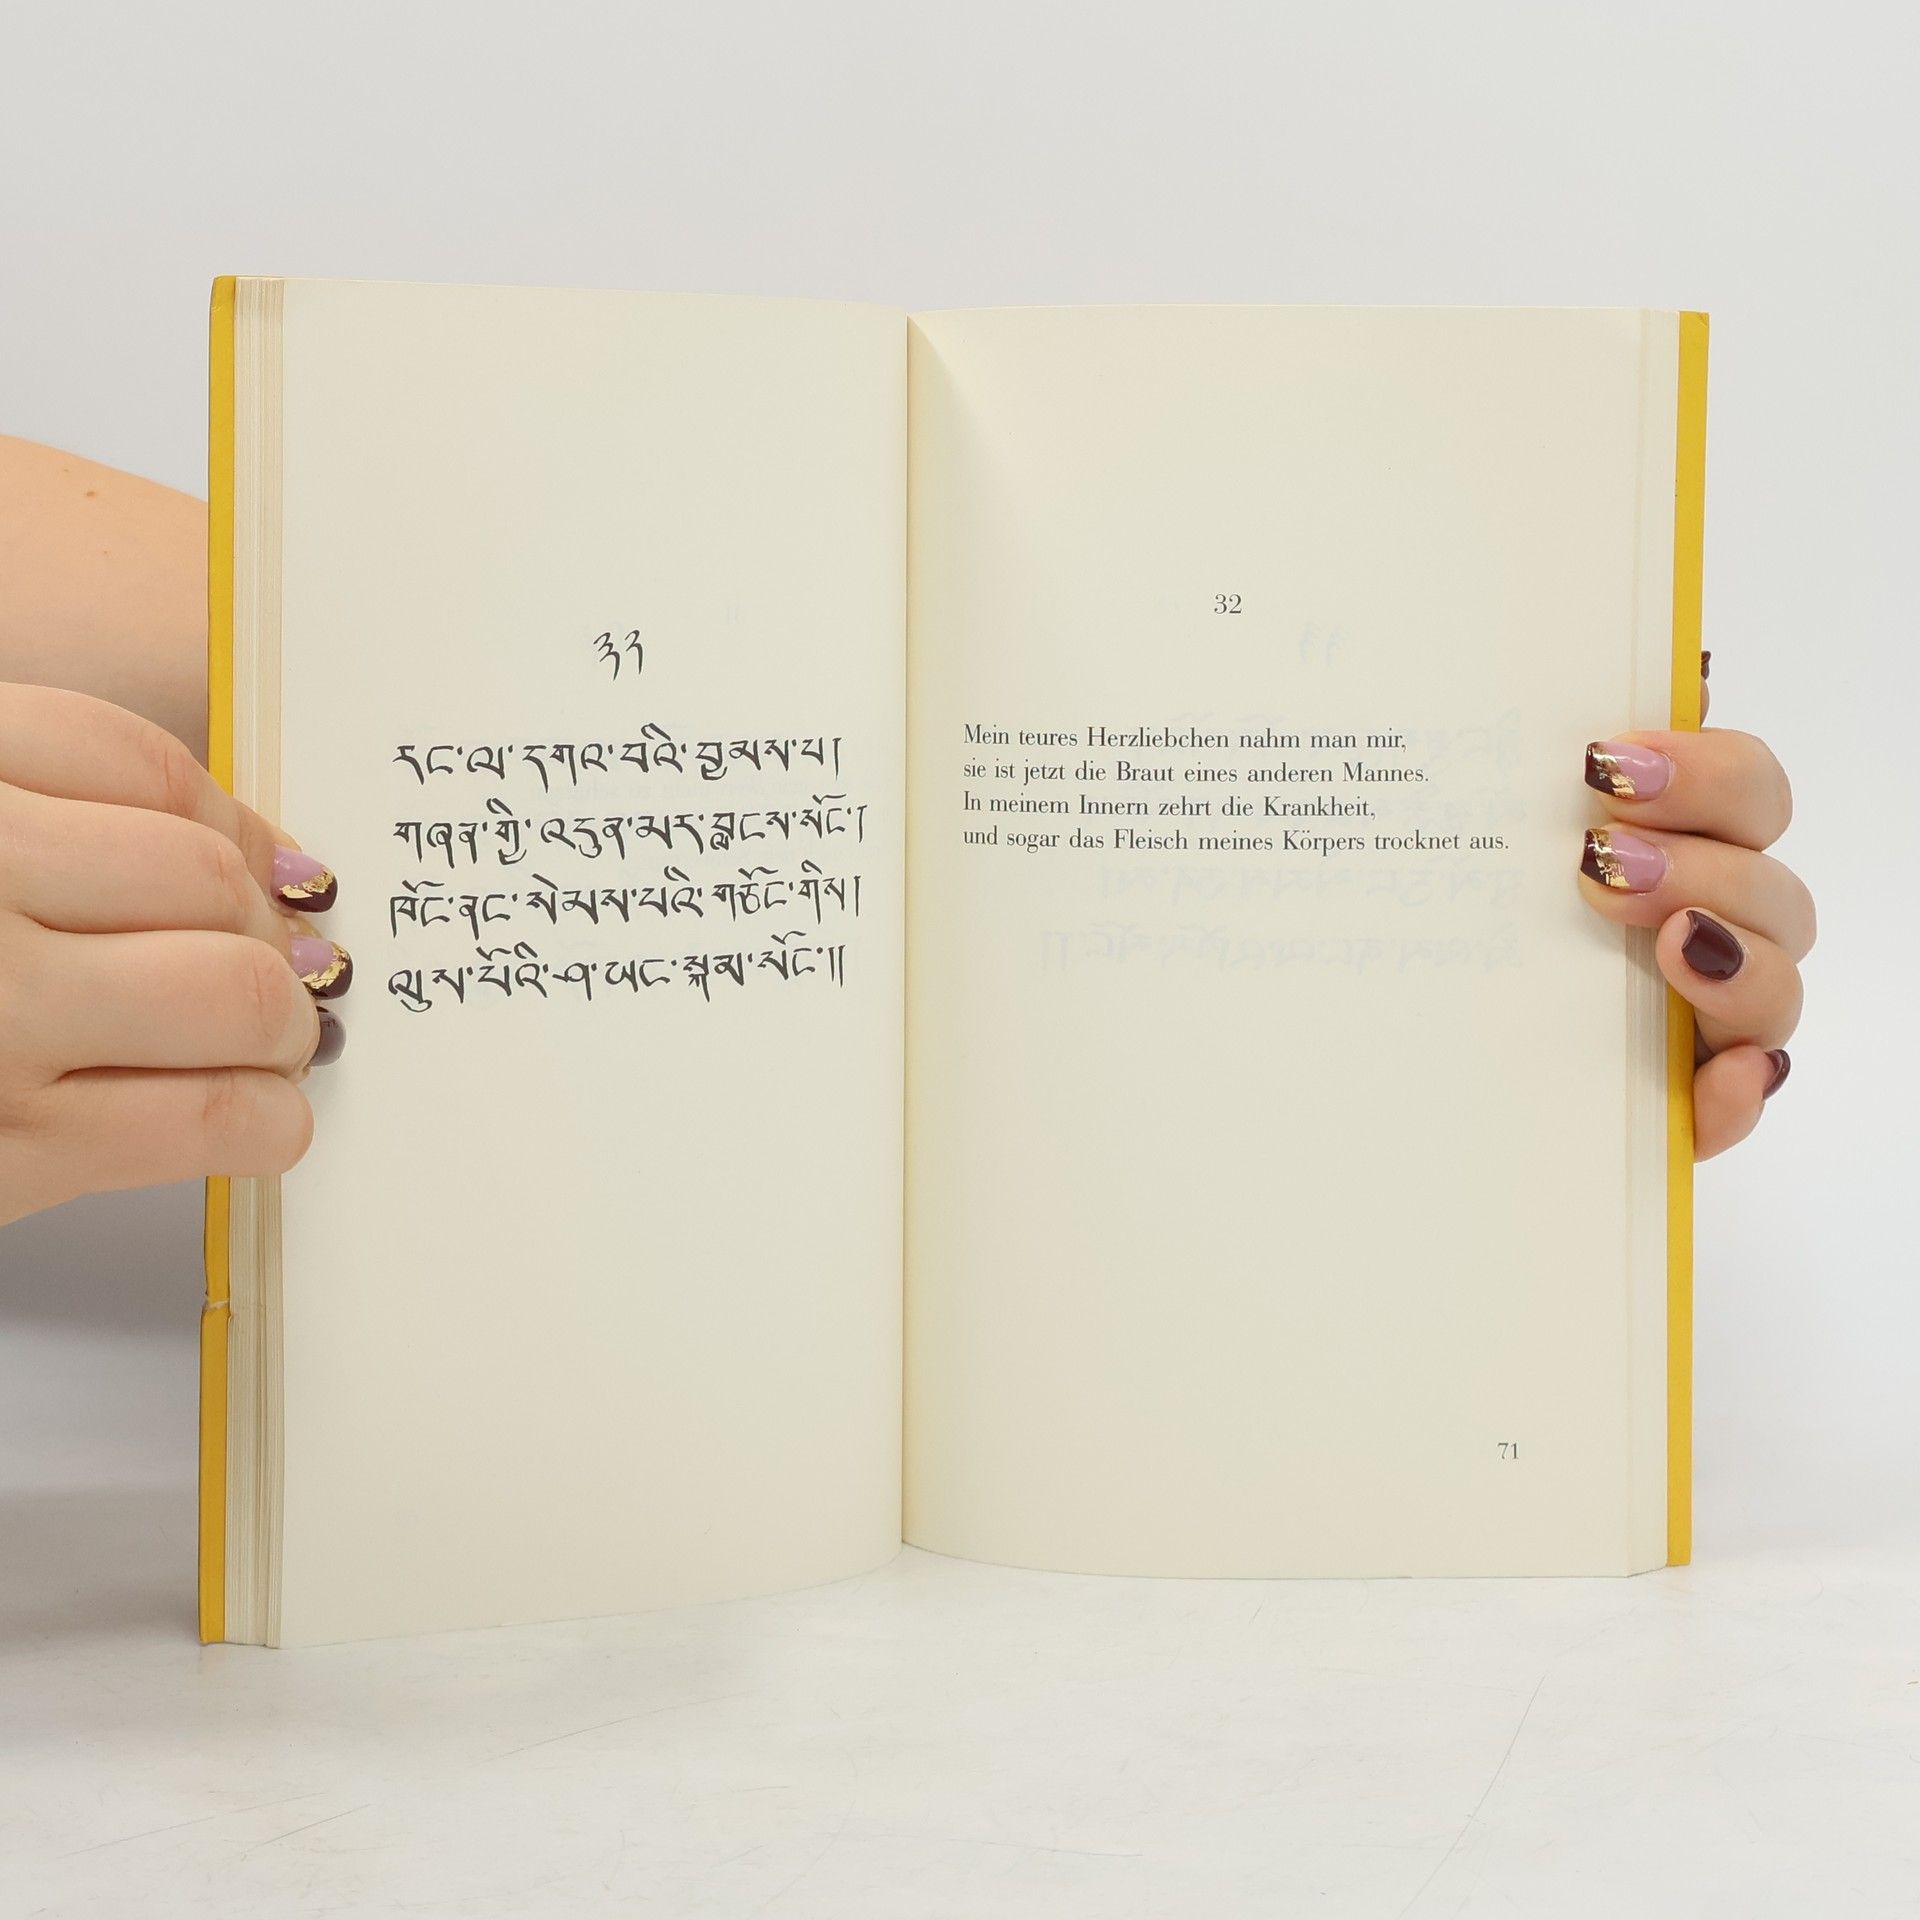 ༣༢
རང་ལ་དགའ་བའི་བྱམས་པ།
གཞན་གྱི་འདུན་མར་བླངས་སོང་།
ཁོང་ནང་སེམས་པའི་གཅོང་གིས།
ལུས་པོའི་ཤ་ཡང་སྐམ་སོང་༎
32
Mein teures Herzliebchen nahm man mir,
sie ist jetzt die Braut eines anderen Mannes.
In meinem Innern zehrt die Krankheit,
und sogar das Fleisch meines Körpers trocknet aus.
71